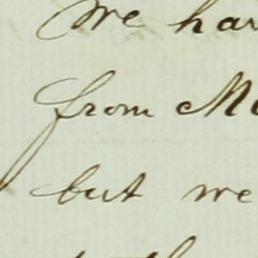 We hav
from Mo
but we